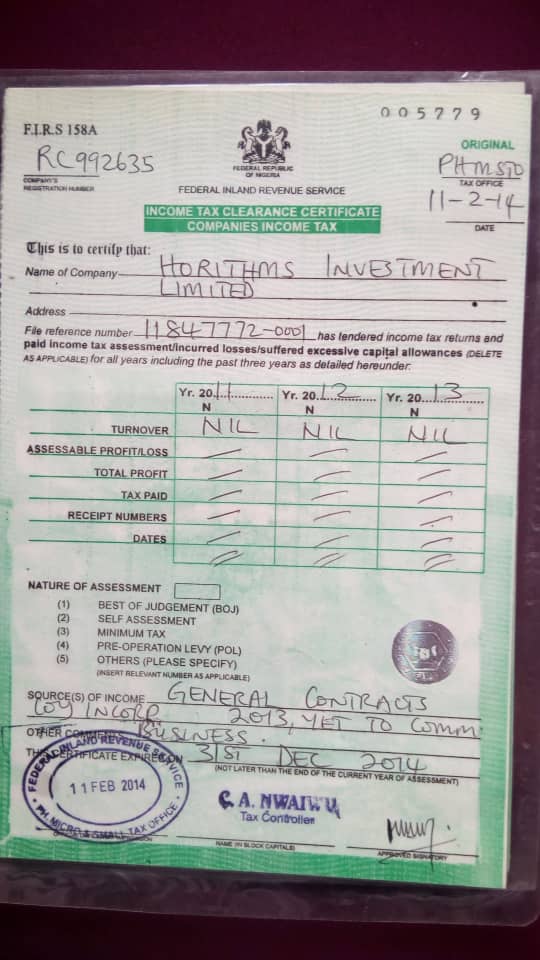 005779
F.I.R.S 158A
ORIGINAL
RC992635
PHMSTO
COMPANY'S
REGISTRATION NUMBER
FEDERAL REPUBLIC
OF NIGERIA
TAX OFFICE
FEDERAL INLAND REVENUE SERVICE
11-2-14
DATE
INCOME TAX CLEARANCE CERTIFICATE
COMPANIES INCOME TAX
This is to certify that:
Name of Company HORITHMS INVESTMENT
LIMITED
Address
File reference number 11847772-0001 has tendered income tax returns and
paid income tax assessment/incurred losses/suffered excessive capital allowances (DELETE
AS APPLICABLE) for all years including the past three years as detailed hereunder:
Yr. 2011 Yr. 2012 Yr. 2013
N N N
TURNOVER NIL NIL NIL
ASSESSABLE PROFIT/LOSS
TOTAL PROFIT
TAX PAID
RECEIPT NUMBERS
DATES
NATURE OF ASSESSMENT
(1) BEST OF JUDGEMENT (BOJ)
(2) SELF ASSESSMENT
(3) MINIMUM TAX
(4) PRE-OPERATION LEVY (POL)
(5) OTHERS (PLEASE SPECIFY)
(INSERT RELEVANT NUMBER AS APPLICABLE)
SOURCE(S) OF INCOME GENERAL CONTRACTS
COY INCORP 2013, YET TO COMM
OTHER COMMENTS BUSINESS.
THIS CERTIFICATE EXPIRED ON 31ST DEC 2014
(NOT LATER THAN THE END OF THE CURRENT YEAR OF ASSESSMENT)
FEDERAL INLAND REVENUE SERVICE
11 FEB 2014
PH. MICRO & SMALL TAX OFFICE
C. A. NWAIWU
Tax Controller
NAME (IN BLOCK CAPITALS)
APPROVED SIGNATORY